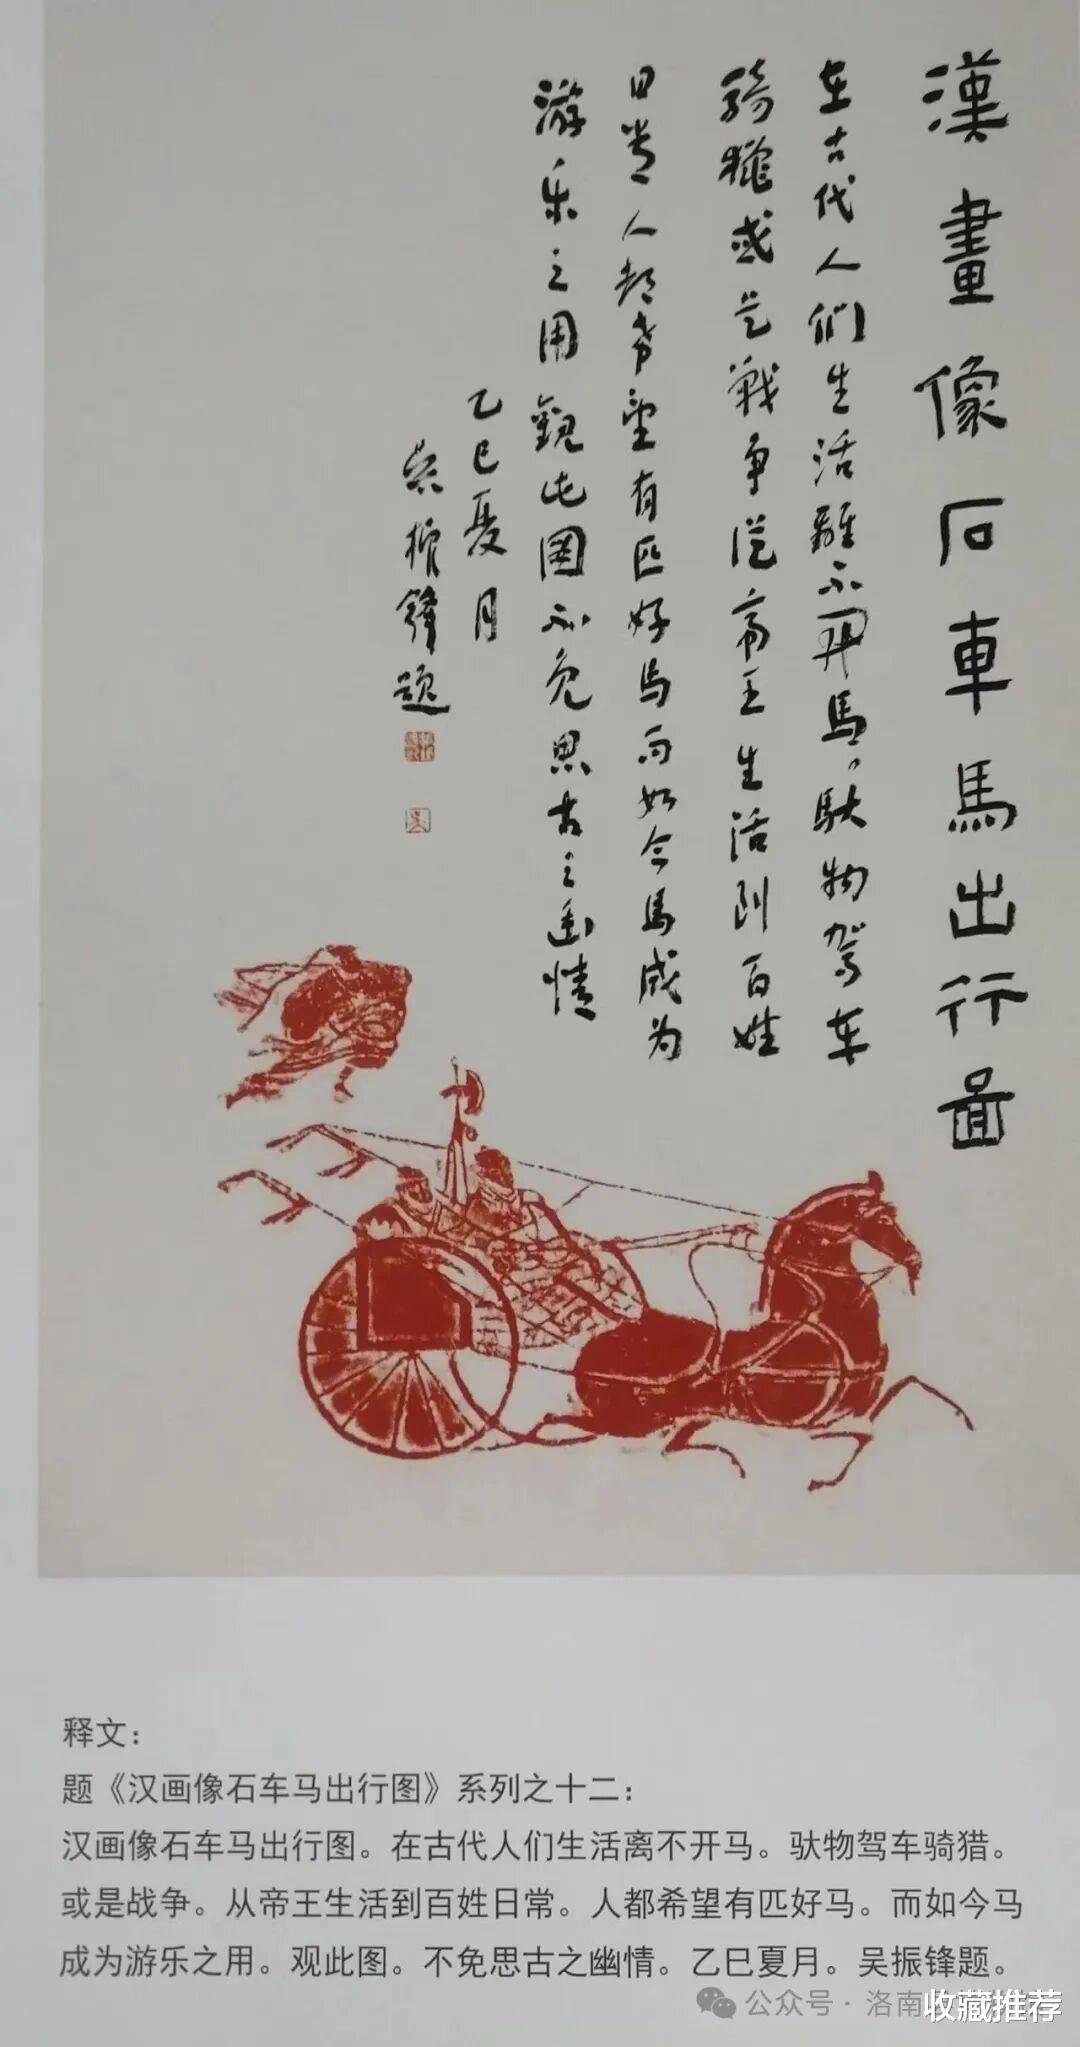 漢畫像石車馬出行圖
在古代人们生活離不開馬馱物驾车
骑獵或是戰争從帝王生活到百姓
日常人都希望有匹好馬而如今馬成为
游乐之用觀此圖不免思古之幽情
乙巳夏月
吴振鋒題
释文：
题《汉画像石车马出行图》系列之十二：
汉画像石车马出行图。在古代人们生活离不开马。驮物驾车骑猎。
或是战争。从帝王生活到百姓日常。人都希望有匹好马。而如今马
成为游乐之用。观此图。不免思古之幽情。乙巳夏月。吴振锋题。
公众号·洛南
收藏推荐